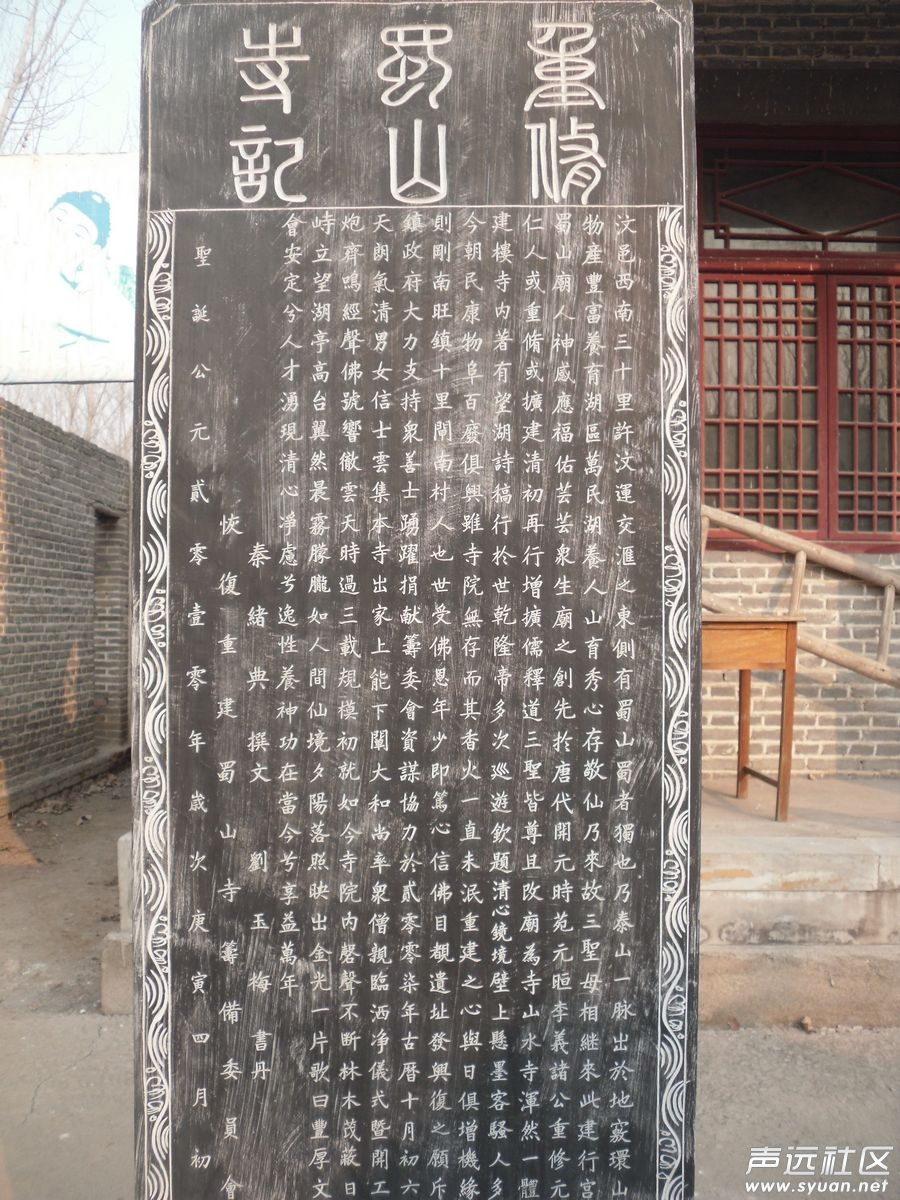 重脩蜀山寺記
汶邑西南三十里許汶運交滙之東側有蜀山蜀者獨也乃泰山一脉出於地竅環山
物産豐富養育湖區萬民湖養人山育秀心存敬仙乃來故三聖母相継來此建行宮
蜀山廟人神感應福佑芸芸衆生廟之創先於唐代開元時苑元晅李義諸公重修元
仁人或重脩或擴建清初再行增擴儒釋道三聖皆尊且改廟為寺山水寺渾然一體
建樓寺内著有望湖詩稿行於世乾隆帝多次巡遊欽題清心鏡境壁上懸墨客騷人多
今朝民康物阜百廢俱興雖寺院無存而其香火一直未泯重建之心與日俱增機緣
則剛南旺鎮十里閘南村人也世受佛恩年少即篤心信佛目覩遺址發興復之願斥
鎮政府大力支持衆善士踴躍捐献籌委會資謀協力於貳零零柒年古曆十月初六
天朗氣清男女信士雲集本寺出家上能下闡大和尚率衆僧親臨洒净儀式暨開工
炮齊鳴經聲佛號響徹雲天時過三載規模初就如今寺院内磬聲不断林木茂蔽日
峙立望湖亭高台翼然晨霧朦朧如人間仙境夕陽落照映出金光一片歌曰豐厚文
會安定兮人才湧現清心凈慮兮逸性養神功在當今兮享益萬年
秦緒典撰文 劉玉梅書丹
恢復重建蜀山寺籌備委員會
聖誕公元貳零壹零年歲次庚寅四月初
声远社区
www.syuan.net